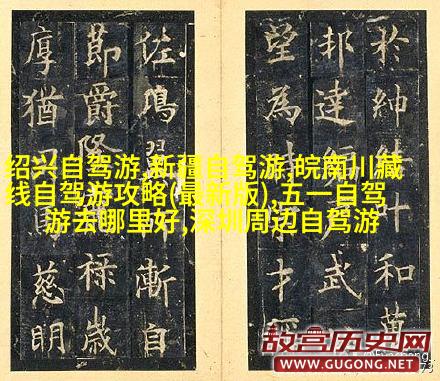 於紳叶和萬
邦達編戶武
望為才
佐鳴翼漸自
節爵隆祿歲
厚猶慈明
绍兴自驾游,新疆自驾游,皖南川藏
线自驾游攻略(最新版),五一自驾
游去哪里好,深圳周边自驾游
故宫历史网
WWW.GUGONG.NET